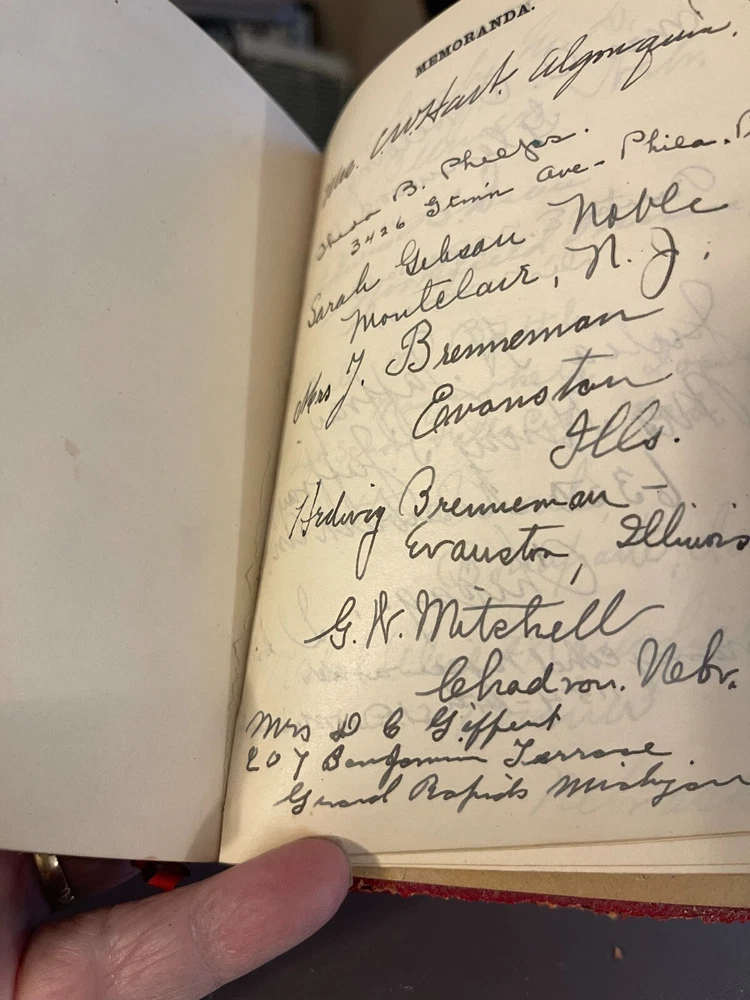 MEMORANDA.
C.W. Hart. Algonquin.
B. Phelps.
3426 Gtm'n Ave - Phila.
Sarah Gibson Noble
Montclair, N.J.
Mrs J. Brenneman
Evanston
Ills.
Hedwig Brenneman -
Evanston, Illinois
G. W. Mitchell
Chadron. Nebr.
Mrs D C Giffert
207 Benjamin Terrase
Grand Rapids Michigan